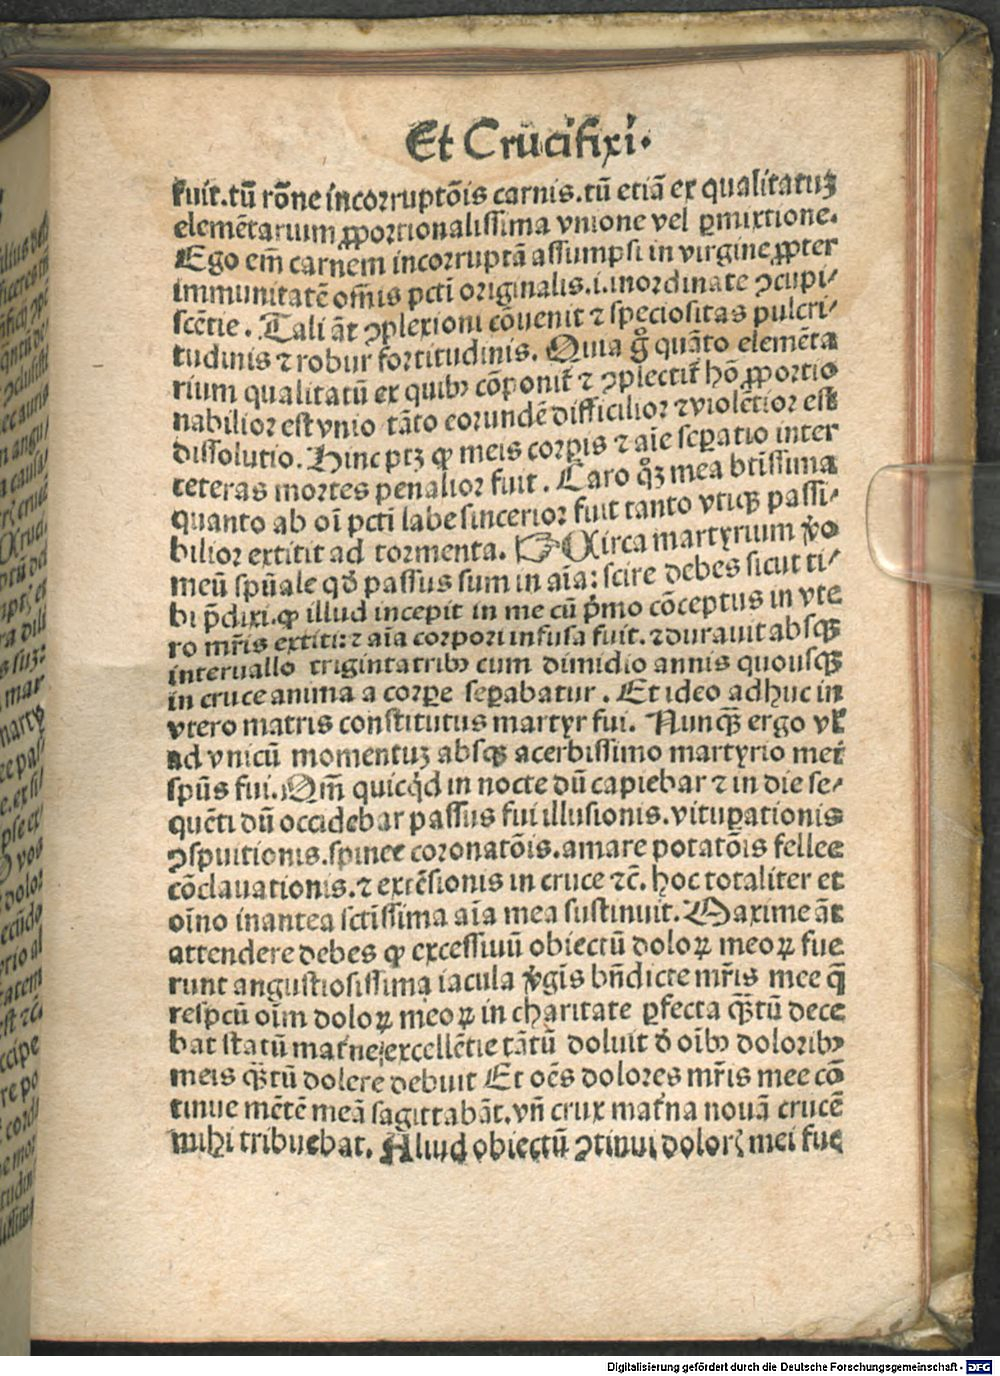 Et Crucifixi.
fuit. tū rōne incorruptōis carnis. tū etiā ex qualitatuꝫ
elemētarium ꝓportionalissima vnione vel ꝑmixtione.
Ego em̄ carnem incorruptā assumpsi in virgine ꝓpter
immunitatē om̄is pcti originalis .i. inordinate ꝯcupi⸗
scētie. Tali āt ꝯplexioni cōuenit ⁊ speciositas pulcri⸗
tudinis ⁊ robur fortitudinis. Quia gͦ quāto elemēta
rium qualitatū ex quibꝰ cōponit̄ ⁊ ꝯplectit̄ hō ꝓportio
nabilior est vnio tāto eorundē difficilior ⁊ violētior est
dissolutio. Hinc ptꝫ ꝙ meis corꝑis ⁊ aīe seꝑatio inter
ceteras mortes penalior fuit. Caro qꝫ mea btīssima
quanto ab oī pcti labe sincerior fuit tanto vtiqꝫ passi⸗
bilior extitit ad tormenta. ☞ Circa martyrium v̓o
meū spūale qđ passus sum in aīa: scire debes sicut ti⸗
bi p̄dixi. ꝙ illud incepit in me cū p̓mo cōceptus in vte
ro mr̄is extiti: ⁊ aīa corpori infusa fuit. ⁊ durauit absqꝫ
interuallo triginta tribꝰ cum dimidio annis quousqꝫ
in cruce anima a corꝑe seꝑabatur. Et ideo adhuc in
vtero matris constitutus martyr fui. Nunqꝫ ergo vl̄
ad vnicū momentuꝫ absqꝫ acerbissimo martyrio mei
spūs fui. Qm̄ quicqͥd in nocte dū capiebar ⁊ in die se⸗
quēti dū occidebar passus fui illusionis. vituꝑationis
ꝯspuitionis. spinee coronatōis. amare potatōis fellee
cōclauationis. ⁊ extēsionis in cruce ⁊c̄. hoc totaliter et
oīno inantea sctīssima aīa mea sustinuit. Maxime āt
attendere debes ꝙ excessiuū obiectū doloꝝ meoꝝ fue
runt angustiosissima iacula v̓gīs bn̄dicte mr̄is mee q̄
respcū oīm doloꝝ meoꝝ in charitate ꝑfecta qꝫtū dece
bat statū mat̓ne excellētie tātū doluit đ oībꝰ doloribꝰ
meis qꝫtū dolere debuit Et oēs dolores mr̄is mee cō
tinue mētē meā sagittabāt. vn̄ crux mat̓na nouā crucē
mihi tribuebat. Aliud obiectū ꝯtinui dolorꝭ mei fue
Digitalisierung gefördert durch die Deutsche Forschungsgemeinschaft - DFG